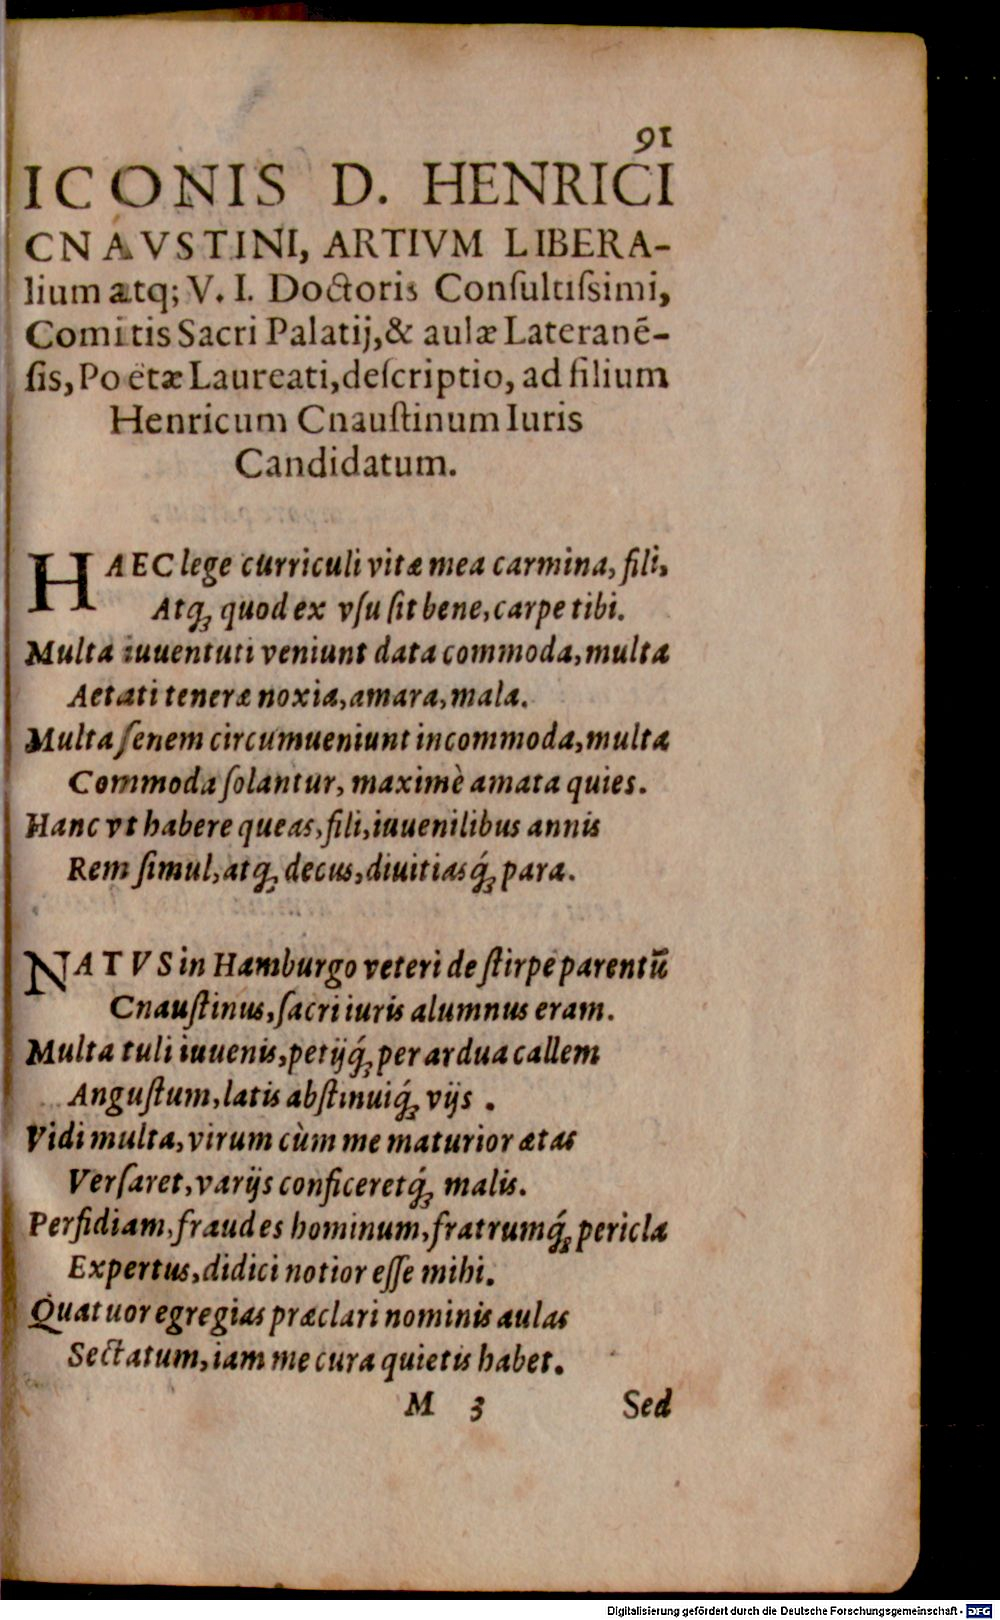 91
ICONIS D. HENRICI
CNAVSTINI, ARTIVM LIBERA-
lium atq; V. I. Doctoris Conſultiſsimi,
Comitis Sacri Palatij, & aulæ Lateranē-
ſis, Poëtæ Laureati, deſcriptio, ad filium
Henricum Cnauſtinum Iuris
Candidatum.
HAEC lege curriculi vitæ mea carmina, fili,
Atq́; quod ex vſu ſit bene, carpe tibi.
Multa iuuentuti veniunt data commoda, multa
Aetati teneræ noxia, amara, mala.
Multa ſenem circumueniunt incommoda, multa
Commoda ſolantur, maximè amata quies.
Hanc vt habere queas, fili, iuuenilibus annis
Rem ſimul, atq; decus, diuitiasq́; para.
NATVS in Hamburgo veteri de ſtirpe parentū
Cnauſtinus, ſacri iuris alumnus eram.
Multa tuli iuuenis, petijq́; per ardua callem
Anguſtum, latis abſtinuiq́; vijs.
Vidi multa, virum cùm me maturior ætas
Verſaret, varijs conficeretq́; malis.
Perfidiam, fraudes hominum, fratrumq́; pericla
Expertus, didici notior eſſe mihi.
Quatuor egregias præclari nominis aulas
Sectatum, iam me cura quietis habet.
M 3 Sed
Digitalisierung gefördert durch die Deutsche Forschungsgemeinschaft - DFG